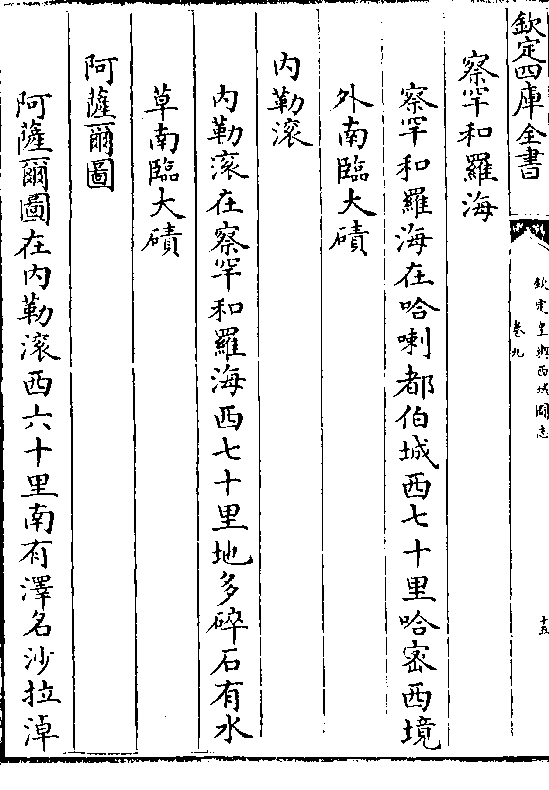 欽定四庫全書
欽定皇輿西域圖志
卷九
十五
察罕和羅海
察罕和羅海在哈喇都伯城西七十里哈密西境
外南臨大磧
內勒滚
內勒滚在察罕和羅海西七十里地多碎石有水
草南臨大磧
阿薩爾圖
阿薩爾圖在內勒滚西六十里南有澤名沙拉淖